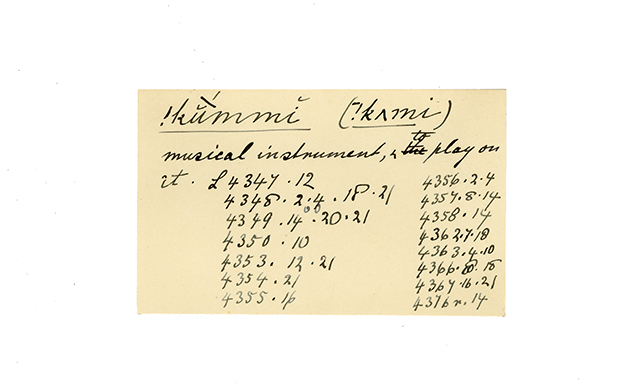 !kṹmmĭ (!kʌmi)
musical instrument, & to play on
it. L 4347.12 4356.2.4
4348.2.4.18.21 4357.8.14
4349.14.20.21 4358.14
4350.10 4362.7.18
4353.12.21 4363.4.10
4354.21 4366.10.18
4355.16 4367.16.21
4376r.14